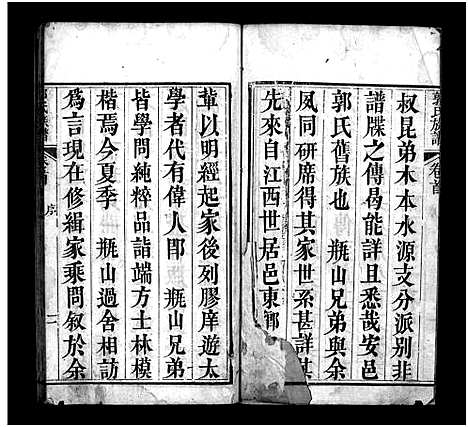 郭氏族譜
卷首
叔昆弟木本水源支分派別非
譜牒之傳曷能詳且悉哉安邑
郭氏舊族也 瓶山兄弟與余
夙同研席得其家世系甚詳其
先來自江西世居邑東鄉
軰以明經起家後列膠庠遊太
學者代有偉人即 瓶山兄弟
皆學問純粹品詣端方士林模
楷焉今夏季 瓶山過舍相訪
為言現在修緝家乘問敘於余
氏族譜
序
二